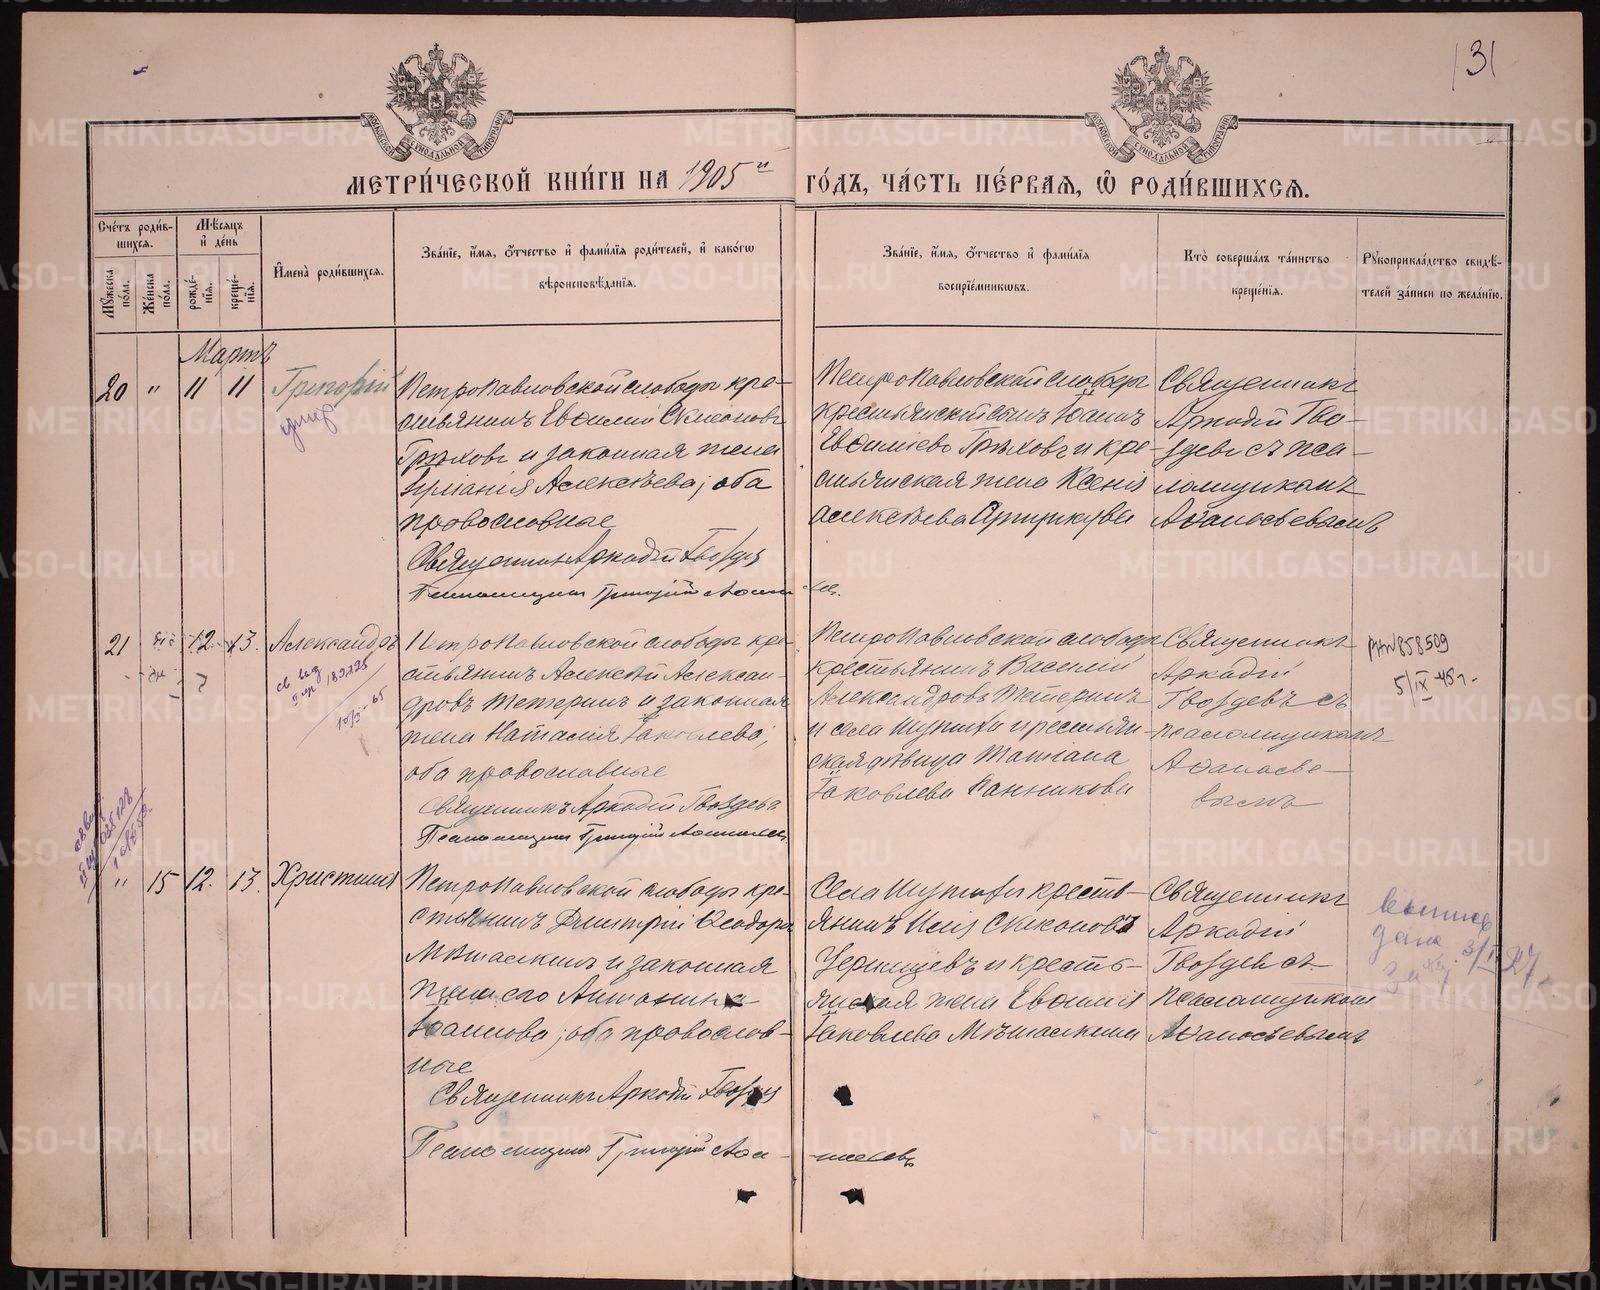 131
МОСКОВСКОЙ СѴНОДАЛЬНОЙ ТИПОГРАФІИ
МОСКОВСКОЙ СѴНОДАЛЬНОЙ ТИПОГРАФІИ
МЕТРИ́ЧЕСКОЙ КНИ́ГИ НА 1905 й ГО́ДЪ, ЧА́СТЬ ПЕ́РВАЯ, Ѡ РОДИ́ВШИХСЯ.
Сче́тъ роди́вшихся.
Мꙋ́жеска по́ла.
Же́нска по́ла.
Мѣ́сяцъ и де́нь
рожде́нїя.
креще́нїя.
И҆мена̀ роди́вшихся.
Зва́нїе, и҆́мя, ѻ҆́тчество и҆ фами́лїя роди́телей, и҆ како́гѡ вѣроисповѣ́данїя.
Зва́нїе, и҆́мя, ѻ҆́тчество и҆ фами́лїя воспрїе́мникѡвъ.
Кто̀ соверша́лъ та́инство креще́нїя.
Рꙋкоприкла́дство свидѣ́телей за́писи по жела́нїю.
Мартъ
20 " 11 11 Григорій
умер
Петропавловской слободы кре-
стьянинъ Евѳимій Симоновъ
Грѣховъ и законная жена
Алексѣева; оба
православные
Священник Аркадій Гвоздев
Псаломщик Григорій Афанасьев
Петропавловской слободы
крестьянскій сынъ Іоаннъ
Евѳиміевъ Грѣховъ и кре-
стьянская жена Ксенія
Алексѣева
Священникъ
Аркадій Гво-
здевъ съ пса-
ломщикомъ
Аѳанасьевымъ
21 12. 13. Александръ
Петропавловской слободы кре-
стьянинъ Алексѣй Алексан-
дровъ Тетеринъ и законная
жена Наталія Іаковлева;
оба православные
Священникъ Аркадій Гвоздевъ
Псаломщик Григорій Афанасьев
Петропавловской слободы
крестьянинъ Василій
Александровъ Тетеринъ
и села крестьян-
ская дѣвица Татіана
Іаковлева Санникова
Священникъ
Аркадій
Гвоздевъ съ
псаломщикомъ
Аѳанасье-
вымъ
858509
5/IX 45 г.
" 15 12. 13. Христина
Петропавловской слободы кре-
стьянинъ Димитрій Ѳеодоровъ
Мѣшалкинъ и законная
жена его Антонина
Іоаннова; оба православ-
ные
Священникъ Аркадій Гвоздев
Псаломщик Григорій Афанасьевъ
Села крестья-
нинъ Симоновъ
Чернышевъ и кресть-
янская жена Евѳимія
Іаковлева Мѣшалкина
Священникъ
Аркадій
Гвоздев съ
псаломщиком
Аѳанасьевымъ
METRIKI.GASO-URAL.RU